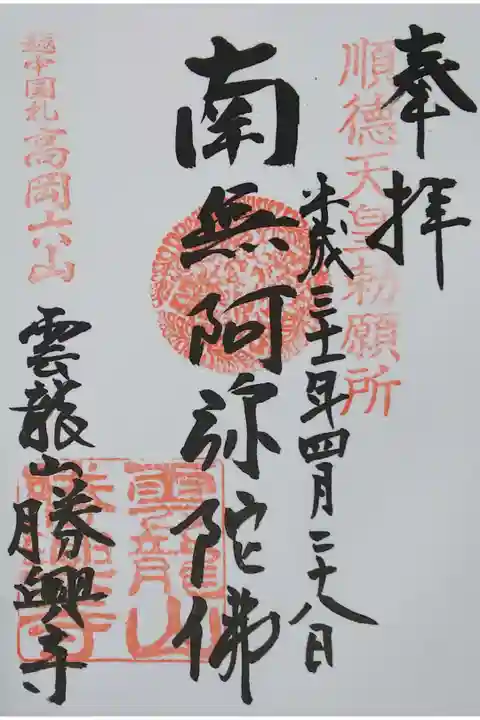 奉拝
順徳天皇勅願所
平成三十一年四月二十八日
南無阿弥陀佛
越中国札高岡六山
雲龍山勝興寺
雲龍山
勝興寺